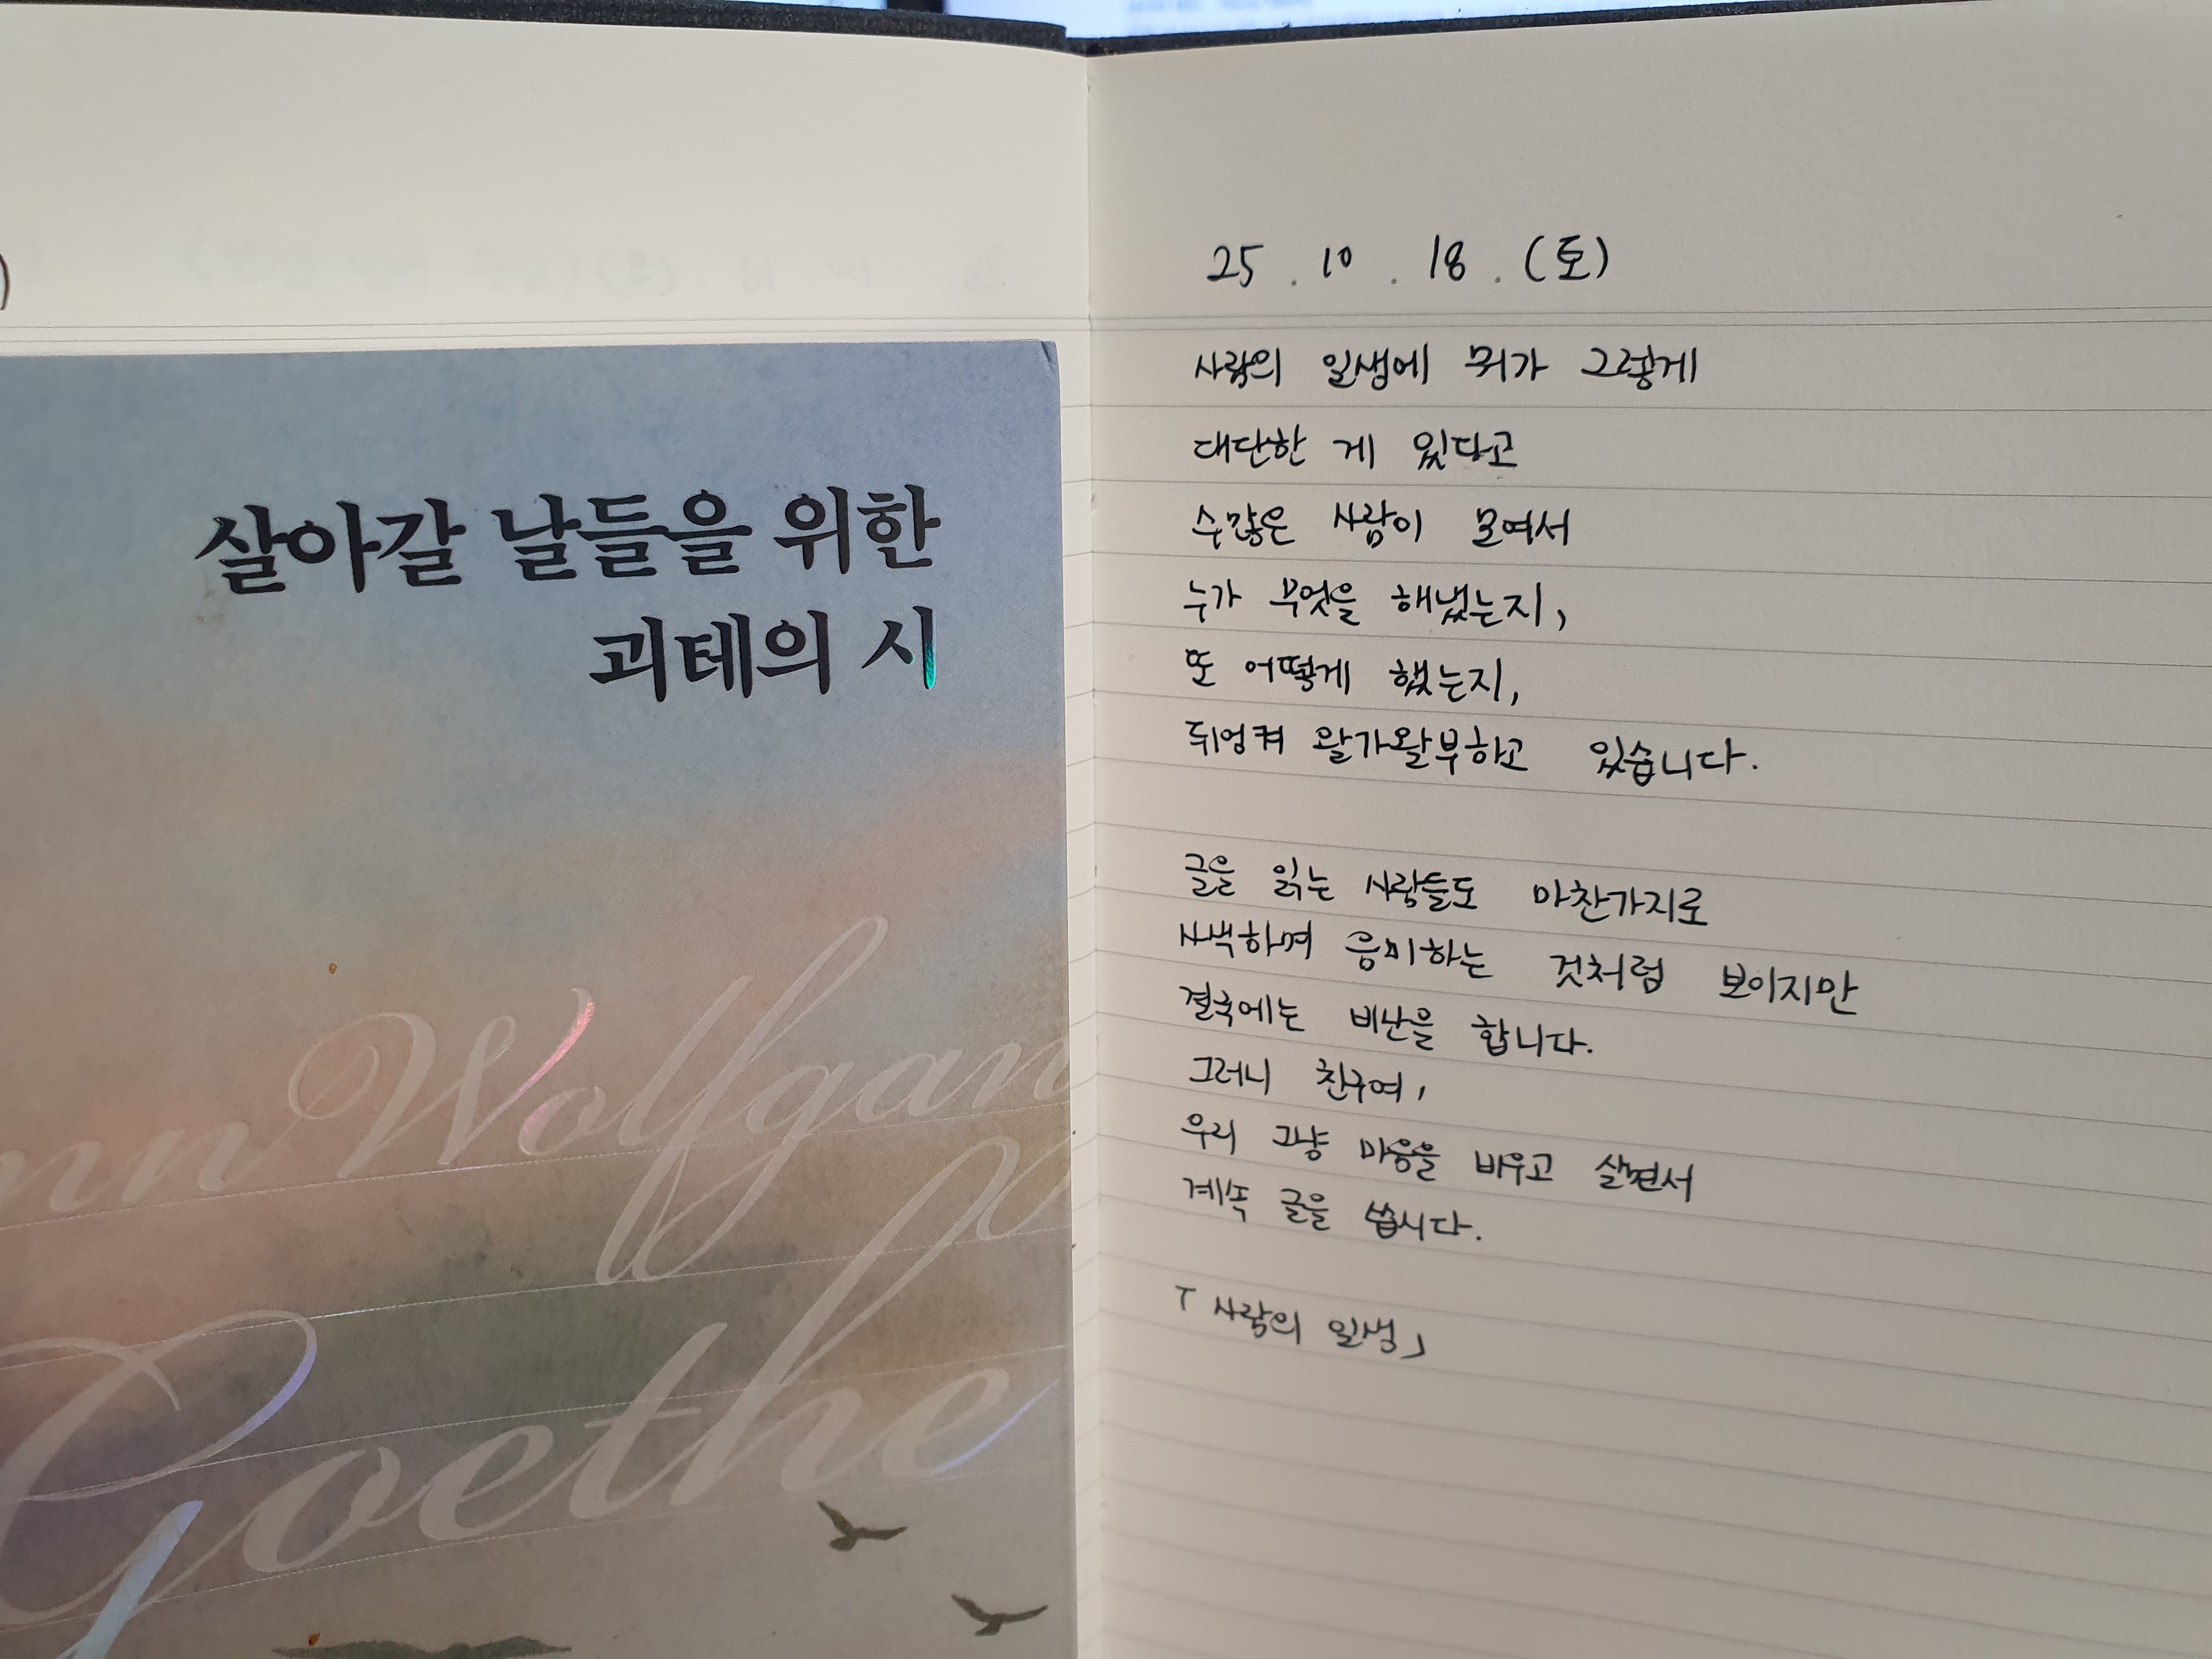 살아갈 날들을 위한
괴테의 시
Wolfgan
Goethe
25 . 10 . 18 . (토)
사람의 일생에 뭐가 그렇게
대단한 게 있다고
수많은 사람이 모여서
누가 무엇을 해냈는지,
또 어떻게 했는지,
뒤엉켜 왈가왈부하고 있습니다.
글을 읽는 사람들도 마찬가지로
사색하며 음미하는 것처럼 보이지만
결국에는 비난을 합니다.
그러니 친구여,
우리 그냥 마음을 비우고 살면서
계속 글을 씁시다.
「사람의 일생」